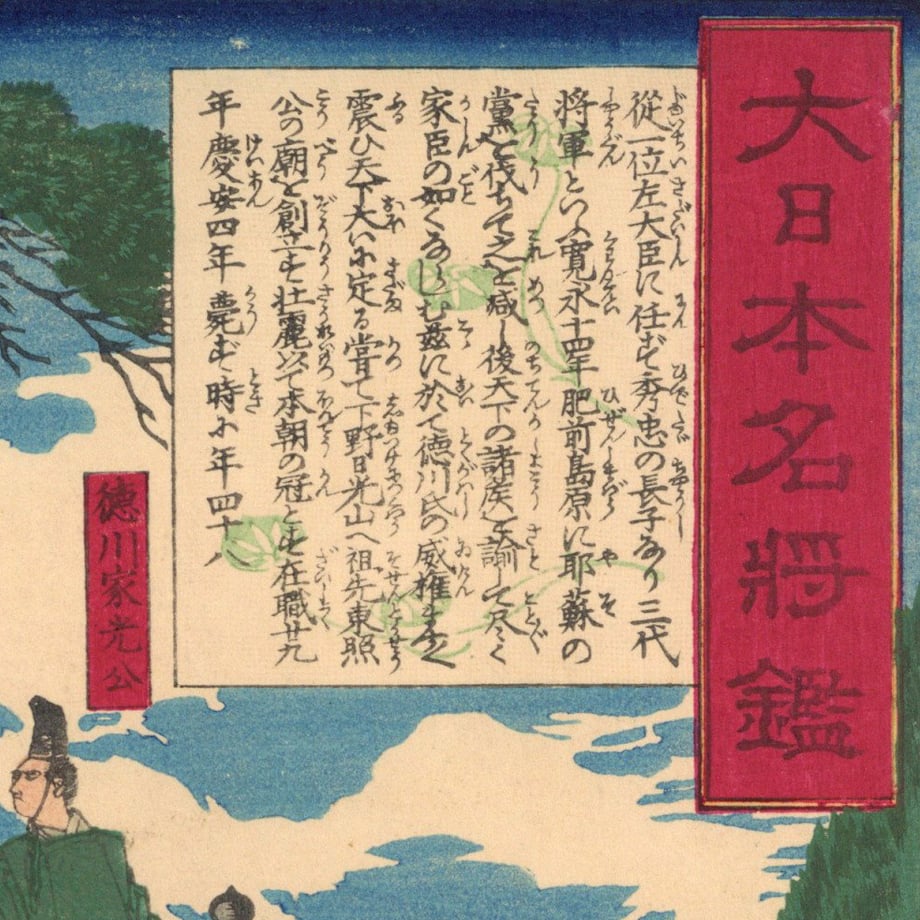 大日本名將鑑
從一位左大臣に任ず秀忠の長子なり三代
将軍といふ寛永十四年肥前島原に耶蘇の
黨を伐ちて之を滅し後天下の諸矦を諭して尽く
家臣の如くならしむ茲に於て徳川氏の威権ますく
震ひ天下大いに定る嘗て下野日光山へ祖先東照
公の廟を創立す壮麗以て本朝の冠とす在職廿九
年慶安四年薨ず時に年四十八
徳川家光公